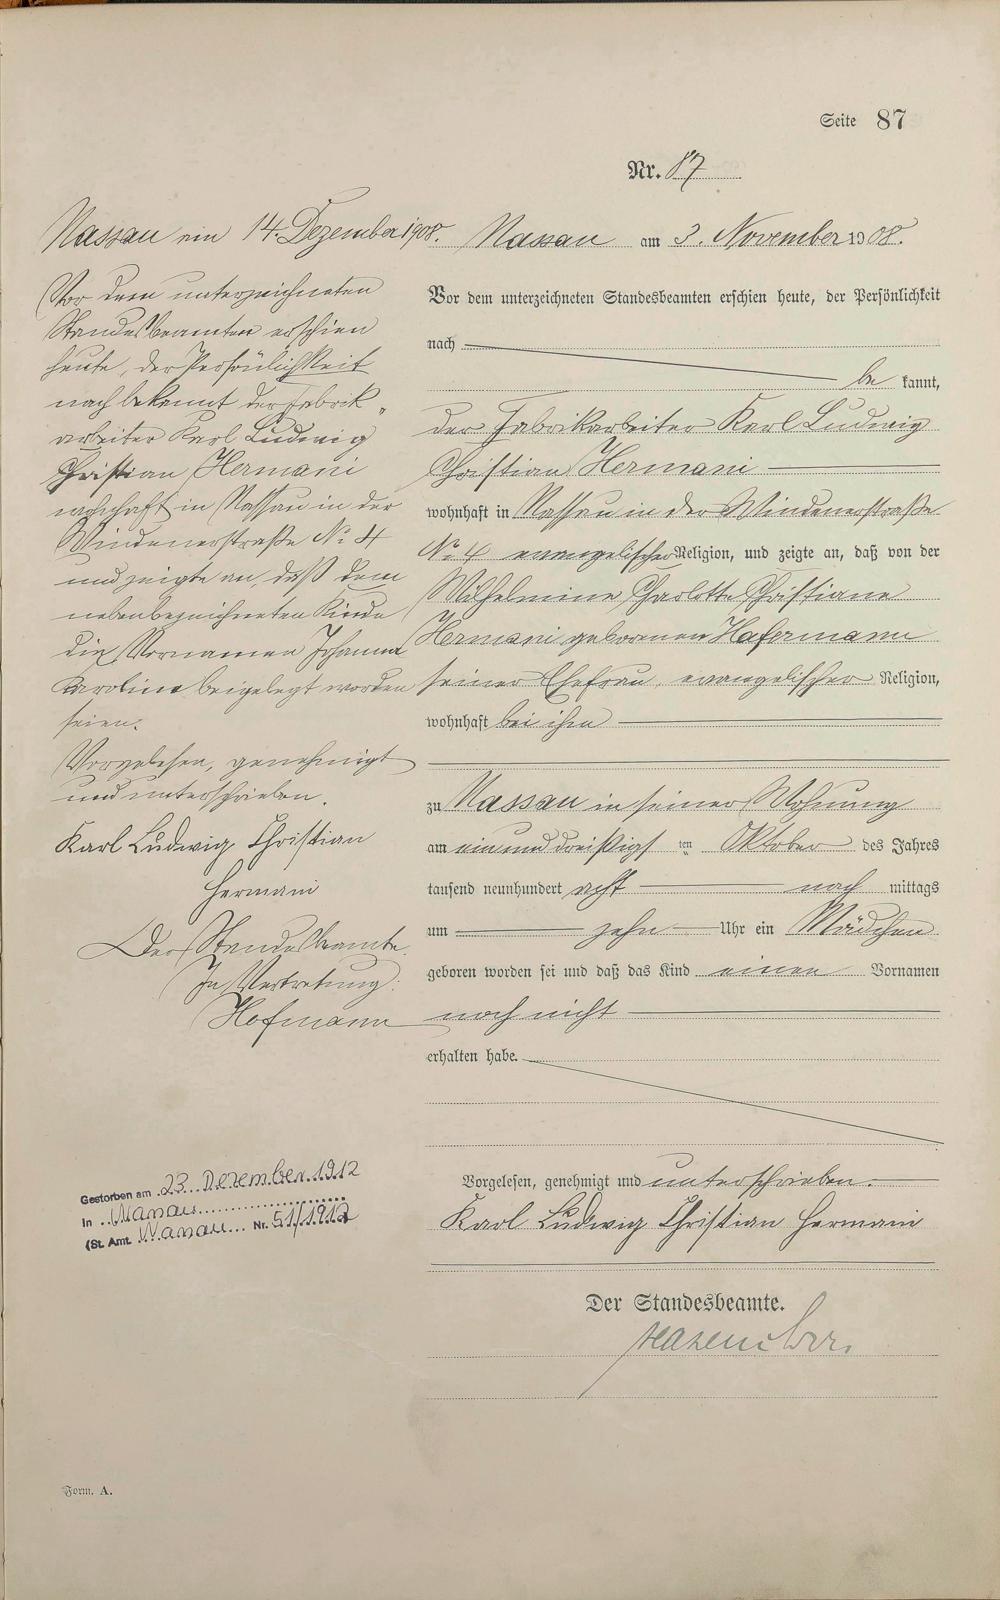 Seite 87
Nr. 87
Nassau am 3. November 1908.
Vor dem unterzeichneten Standesbeamten erschien heute, der Persönlichkeit
nach
be kannt,
der Fabrikarbeiter Karl Ludwig
Christian Hermani
wohnhaft in Nassau in der Windenerstraße
No 4 evangelischer Religion, und zeigte an, daß von der
Wilhelmine Charlotte Christiane
Hermani geborenen Hafermann
seiner Ehefrau, evangelischer Religion,
wohnhaft bei ihm
zu Nassau in seiner Wohnung
am einunddreißigs ten Oktober des Jahres
tausend neunhundert acht nach mittags
um zehn Uhr ein Mädchen
geboren worden sei und daß das Kind einen Vornamen
noch nicht
erhalten habe.
Vorgelesen, genehmigt und unterschrieben.
Karl Ludwig Christian Hermani
Der Standesbeamte.
Nassau am 14. Dezember 1908.
Vor dem unterzeichneten
Standesbeamten erschien
heute, der Persönlichkeit
nach bekannt der Fabrik-
arbeiter Karl Ludwig
Christian Hermani
wohnhaft in Nassau in der
Windenerstraße No 4
und zeigte an, daß dem
nebenbezeichneten Kinde
die Vornamen Johanna
Karoline beigelegt worden
seien.
Vorgelesen, genehmigt
und unterschrieben.
Karl Ludwig Christian
Hermani
Der Standesbeamte.
In Vertretung:
Hofmann
Gestorben am 23. Dezember 1912
in Nassau
(St. Amt Nassau Nr. 51/1912
Form. A.